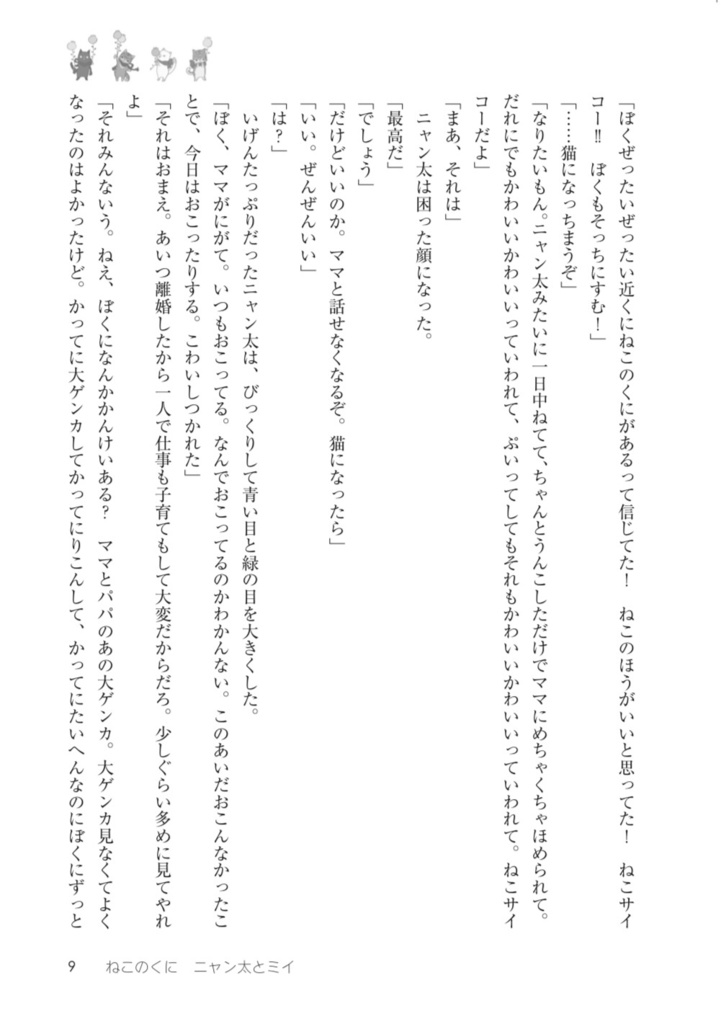 「ぼくぜったいぜったい近くにねこのくにがあるって信じてた！　ねこのほうがいいと思ってた！　ねこサイ
コー‼　ぼくもそっちにすむ！」
「……猫になっちまうぞ」
「なりたいもん。ニャン太みたいに一日中ねてて、ちゃんとうんこしただけでママにめちゃくちゃほめられて。
だれにでもかわいいかわいいっていわれて、ぷいってしてもそれもかわいいかわいいっていわれて。ねこサイ
コーだよ」
「まあ、それは」
　ニャン太は困った顔になった。
「最高だ」
「でしょう」
「だけどいいのか。ママと話せなくなるぞ。猫になったら」
「いい。ぜんぜんいい」
「は？」
　いげんたっぷりだったニャン太は、びっくりして青い目と緑の目を大きくした。
「ぼく、ママがにがて。いつもおこってる。なんでおこってるのかわかんない。このあいだおこんなかったこ
とで、今日はおこったりする。こわいしつかれた」
「それはおまえ。あいつ離婚したから一人で仕事も子育てもして大変だからだろ。少しぐらい多めに見てやれ
よ」
「それみんないう。ねえ、ぼくになんかかんけいある？　ママとパパのあの大ゲンカ。大ゲンカ見なくてよく
なったのはよかったけど。かってに大ゲンカしてかってにりこんして、かってにたいへんなのにぼくにずっと
9　ねこのくに　ニャン太とミイ